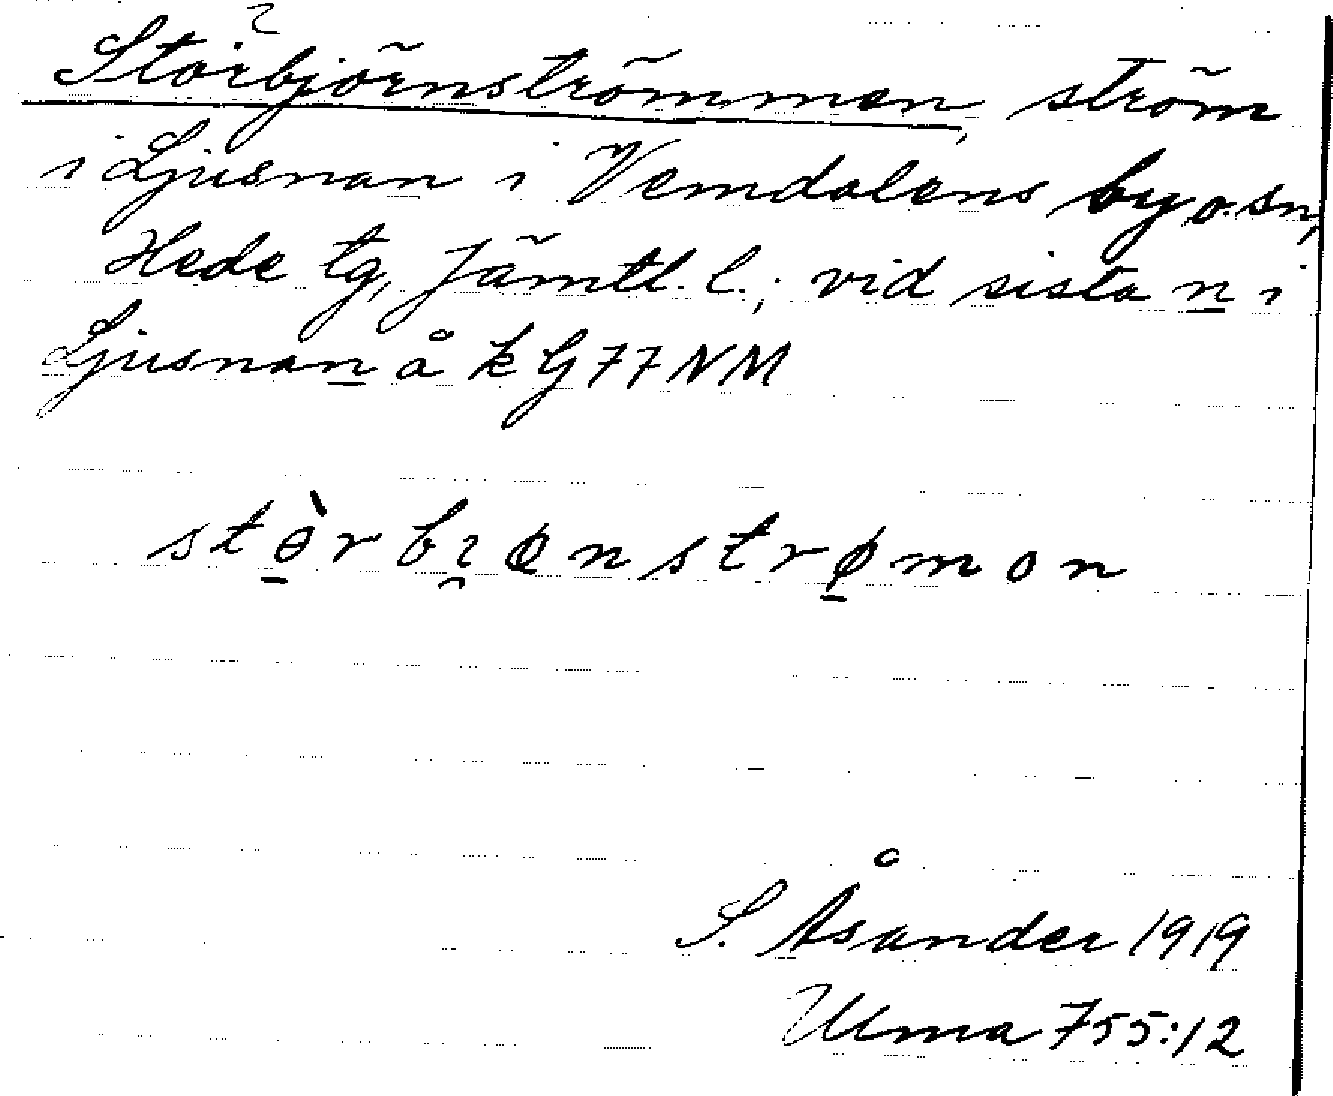 Storbjörnströmmen, ström
i Ljusnan i Vemdalens by o. sn,
Hede tg, Jämtl. l.; vid sista n i
Ljusnan å k G77NM
stòrbi̯ønstrømon
S. Åsander 1919
Ulma 755:12